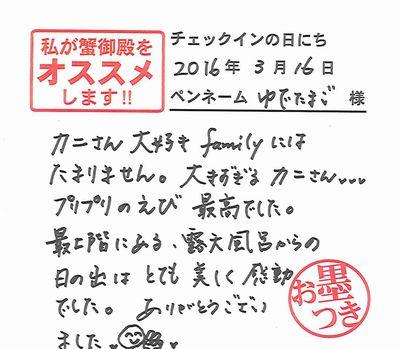 私が蟹御殿を
オススメ
します!!
チェックインの日にち
2016年 3月 16日
ペンネーム ゆでたまご 様
カニさん 大好き familyには
たまりません。大きすぎる カニさん...
プリプリのえび 最高でした。
最上階にある、露天風呂からの
日の出は とても 美しく 感動
でした。 ありがとうござい
ました
お墨つき